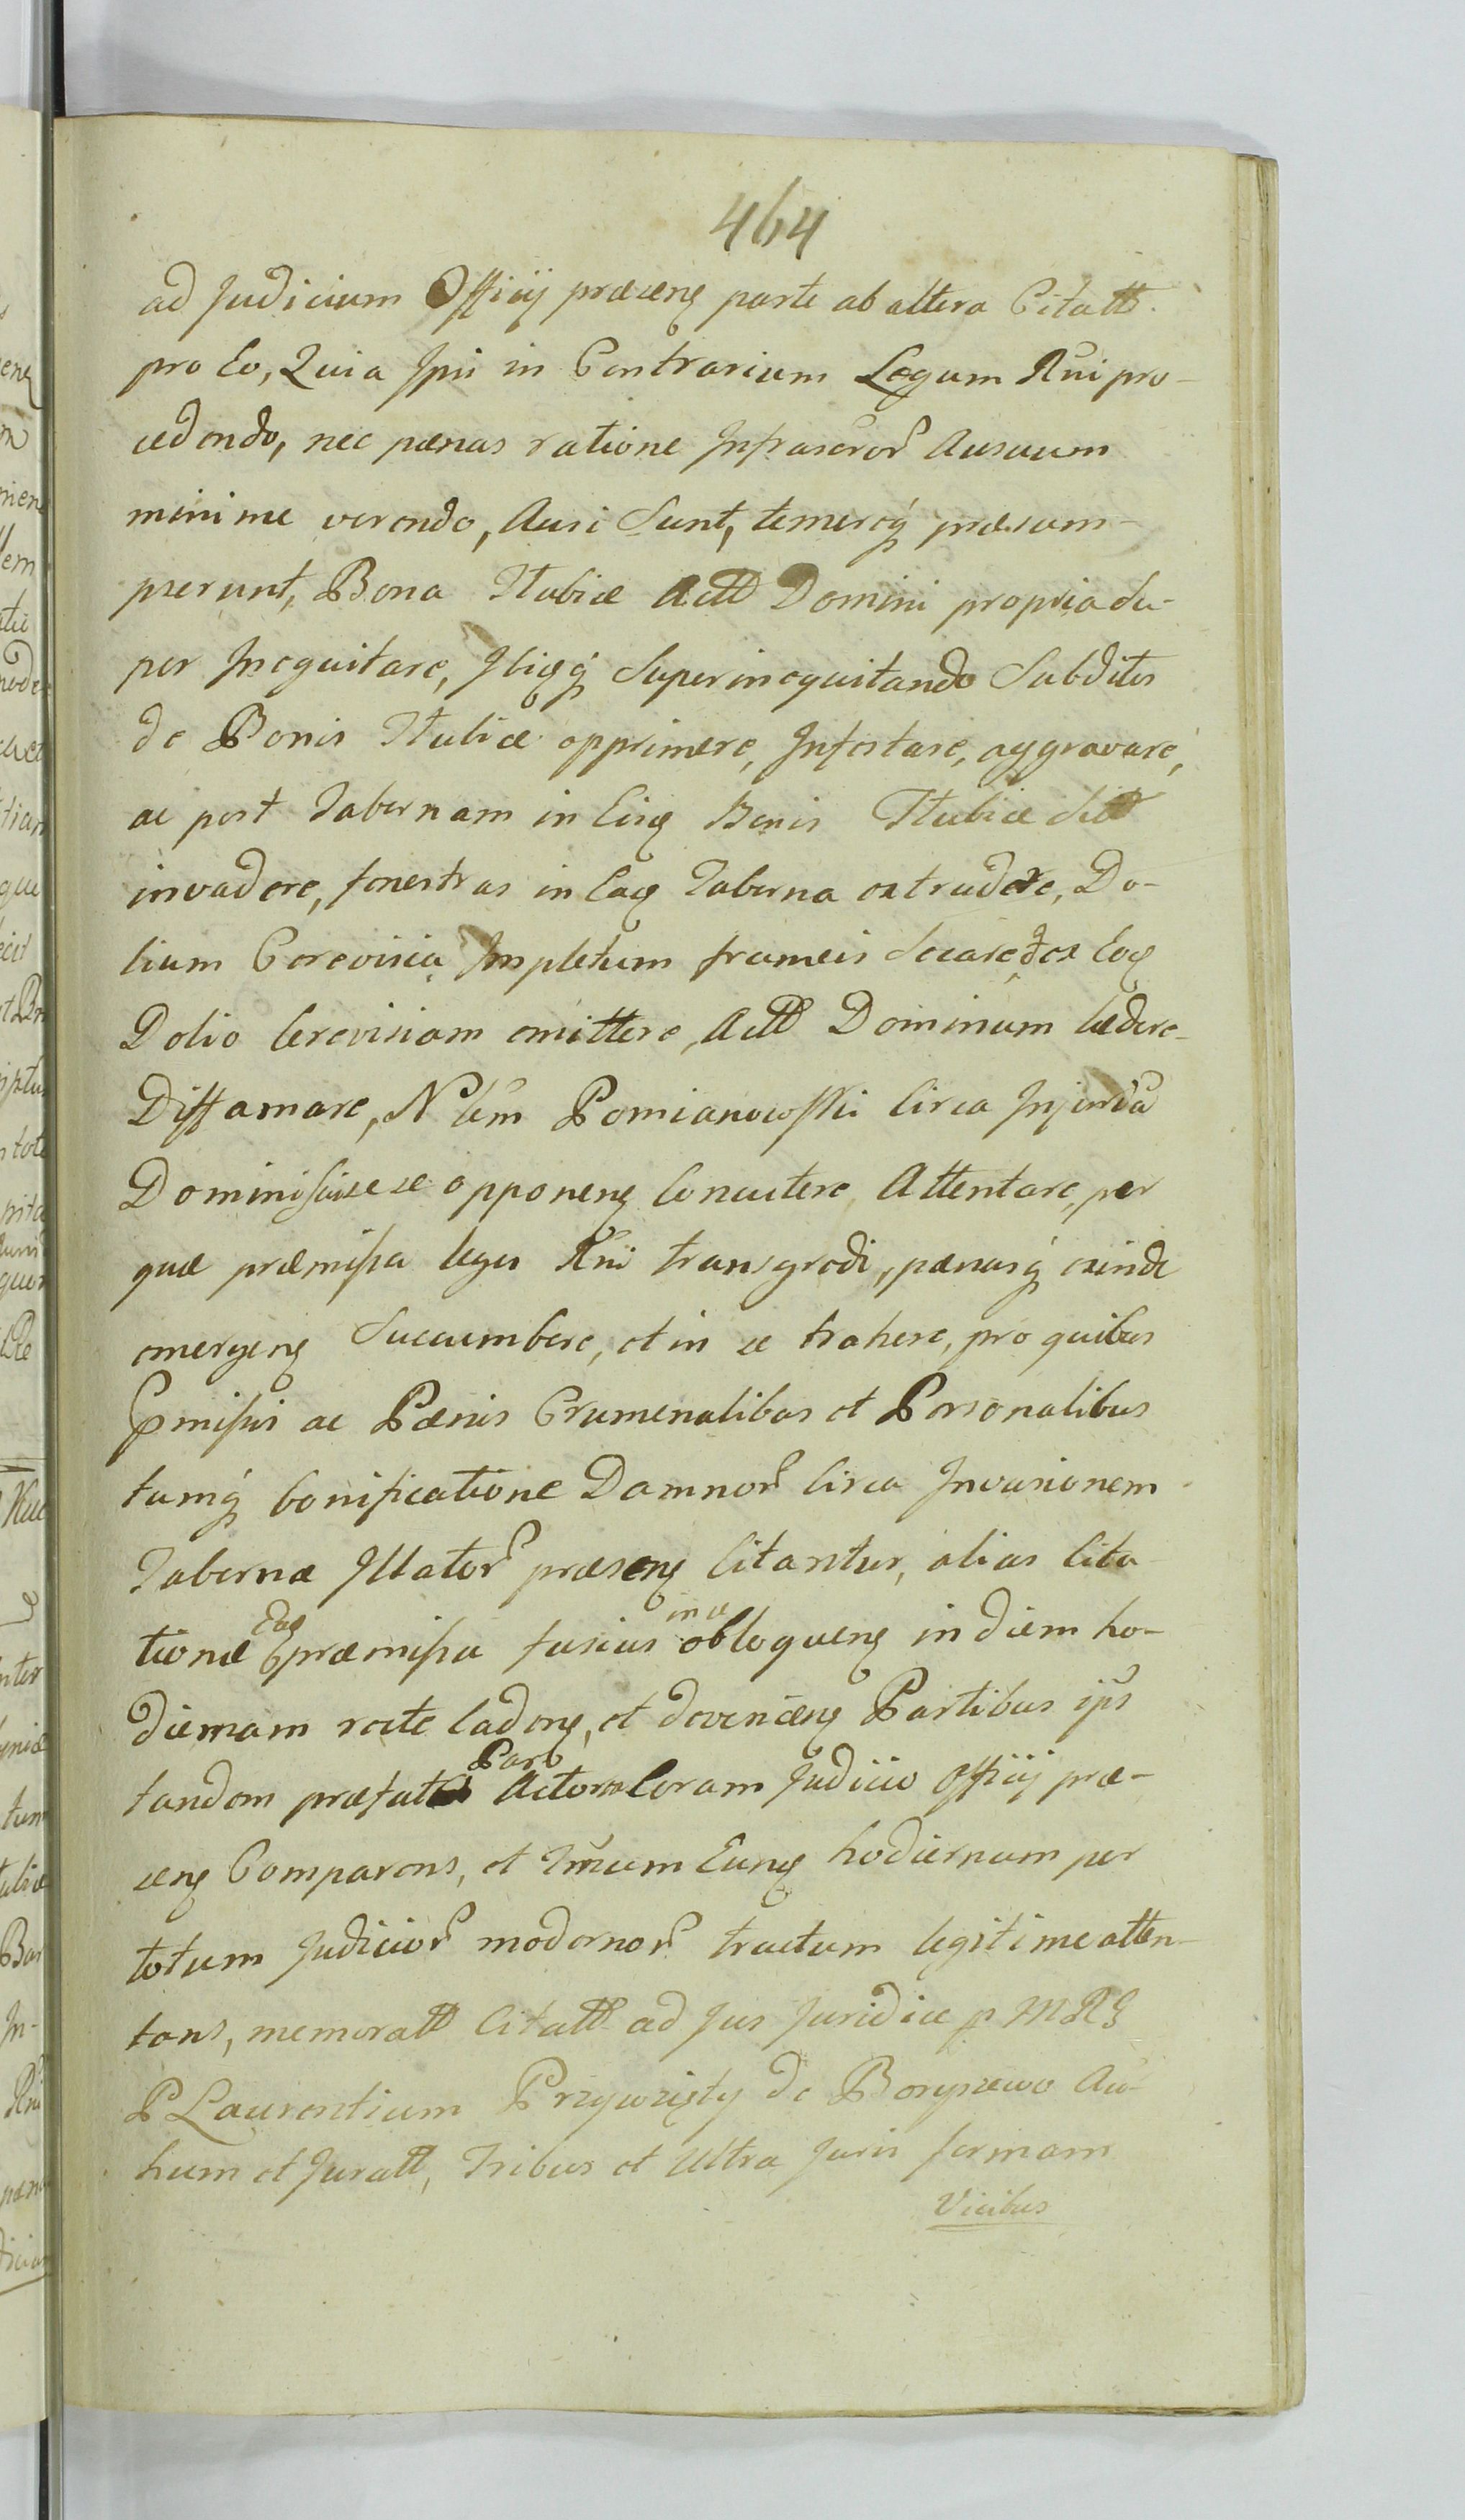 464
ad Judicium Officij præsenꝫ parte ab altera Citatt.
pro Eo, Quia Ipsi in Contrarium Legum Rni pro-
cedendo, nec pænas ratione Infrascror Ausuum
minime verendo, Ausi Sunt, temereq́ præsum-
pserunt, Bona Stubice Actt Domini propria Su-
per Inequitare, Ibiqꝫ Superinequitando Subditos
de Bonis Stubice opprimere, Infestare, aggravare,
ac post Tabernam in Eisꝫ Bonis Stubice Sitt
invadere, fenestras in Eaꝫ Taberna extrudere, Do-
lium Cerevisia Impletum frameis Secare, et ex Eoꝫ
Dolio Cerevisiam emittere, Actt Dominum lædere
Diffamare, Nlem Pomianowski Circa Injuriã
Domini sui sese opponenꝫ Concutere Attentare, per
quæ præmissa leges Rni transgredi, pænasq́ exinde
emergenꝫ Succumbere, et in se trahere, pro quibus
Præmissis ac Pænis Crumenalibus et Personalibus
tumq́ bonificatione Damnor Circa Invasionem
Tabernæ Illator præsenꝫ Citantur, alias Cita-
tione Eaꝫ præmissa fusius in se obloquenꝫ in diem ho-
diernam recte Cadenꝫ, et devenienꝫ Partibus ips
tandem præfata Pars Actorea Coram Judicio Officij præ-
senꝫ Comparens, et Tmum Eunꝫ hodiernum per
totum Judicior modernor tractum legitime atten-
tans, memoratt Citatt ad Jus Juridice p MRS
P Laurentium Przywzięty de Boryszewo Au-
hum et Juratt, Tribus et Ultra Juris formam
Vicibus